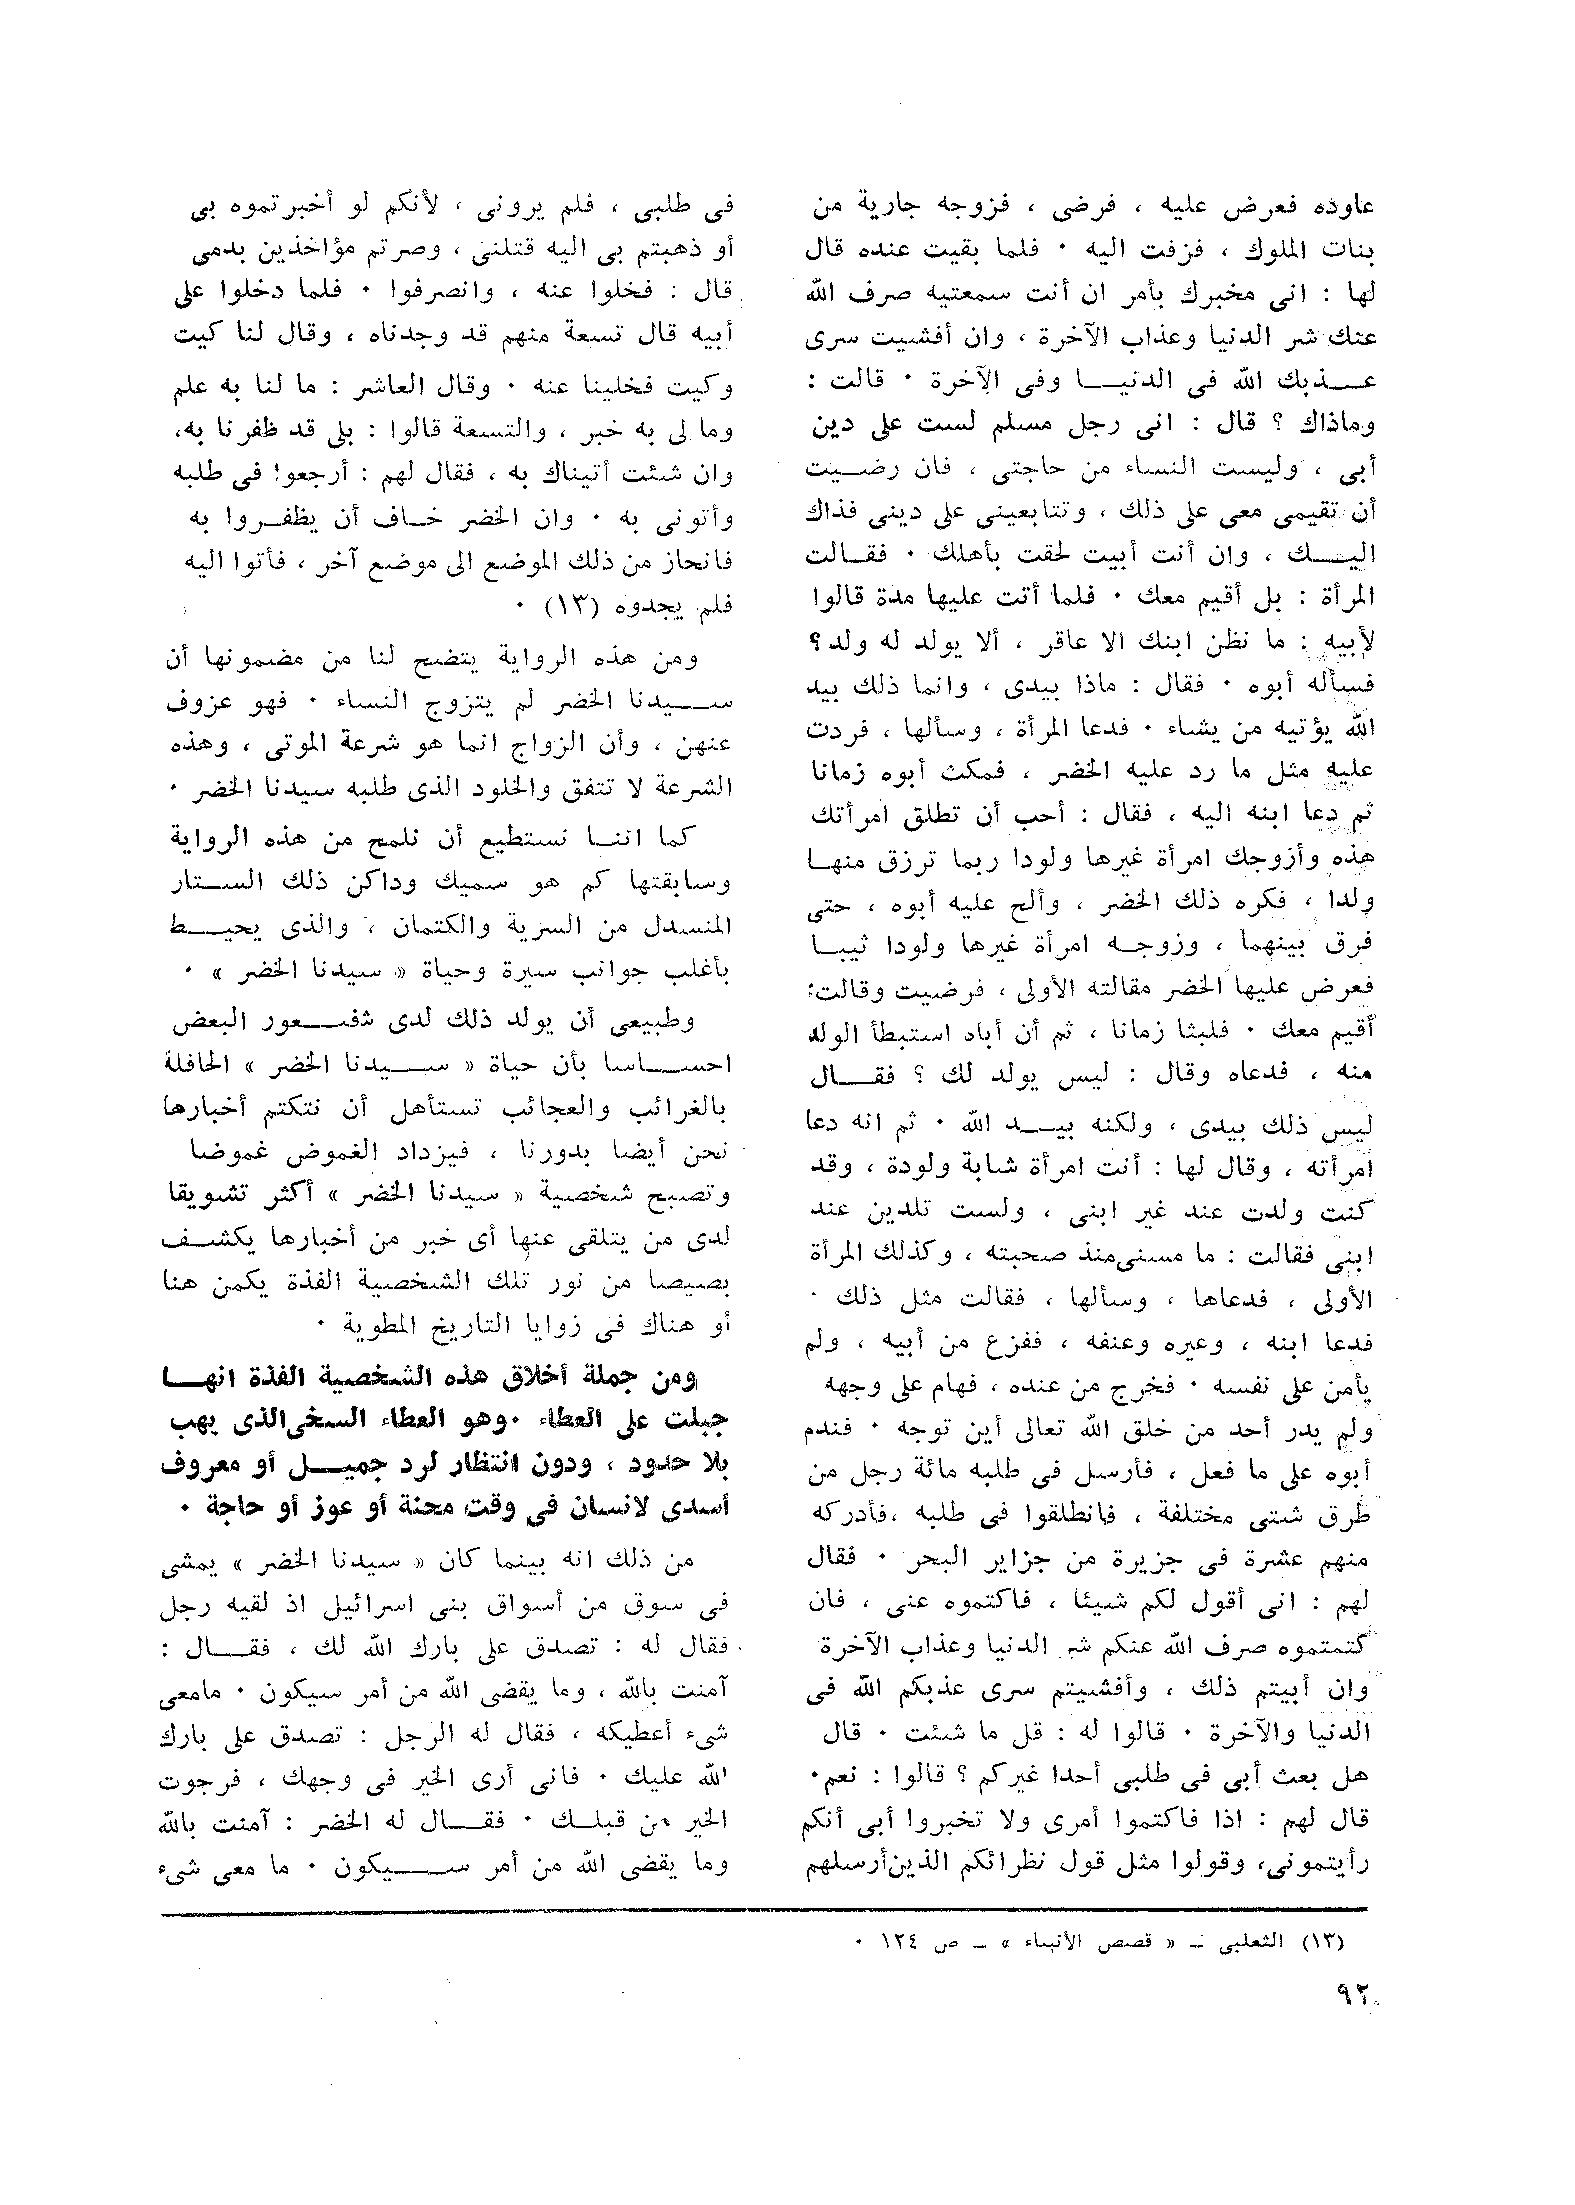 عاوده فعرض عليه ، فرضى ، فزوجه جارية من
بنات الملوك ، فزفت اليه ٠ فلما بقيت عنده قال
لها : انى مخبرك بأمر ان أنت سمعتيه صرف الله
عنك شر الدنيا وعذاب الآخرة ، وان أفشيت سرى
عـــذبك الله فى الدنيـــا وفى الآخرة ٠ قالت :
وماذاك ؟ قال : انى رجل مسلم لست على دين
أبى ، وليست النساء من حاجتى ، فان رضــيت
أن تقيمى معى على ذلك ، وتتابعينى على دينى فذاك
اليـــك ، وان أنت أبيت لحقت بأهلك ٠ فقــالت
المرأة : بل أقيم معك ٠ فلما أتت عليها مدة قالوا
لأبيه : ما نظن ابنك الا عاقر ، ألا يولد له ولد؟
فسأله أبوه ٠ فقال : ماذا بيدى ، وانما ذلك بيد
الله يؤتيه من يشاء ٠ فدعا المرأة ، وسألها ، فردت
عليه مثل ما رد عليه الخضر ، فمكث أبوه زمانا
ثم دعا ابنه اليه ، فقال : أحب أن تطلق امرأتك
هذه وأزوجك امرأة غيرها ولودا ربما ترزق منهــا
ولدا ، فكره ذلك الخضر ، وألح عليه أبوه ، حتى
فرق بينهما ، وزوجــه امرأة غيرها ولودا ثيبــا
فعرض عليها الخضر مقالته الأولى ، فرضيت وقالت:
أقيم معك ٠ فلبثا زمانا ، ثم أن أباه استبطأ الولد
منه ، فدعاه وقال : ليس يولد لك ؟ فقـــال
ليس ذلك بيدى ، ولكنه بيـــد الله ٠ ثم انه دعا
امرأته ، وقال لها : أنت امرأة شابة ولودة ، وقد
كنت ولدت عند غير ابنى ، ولست تلدين عند
ابنى فقالت : ما مسنى منذ صحبته ، وكذلك المرأة
الأولى ، فدعاها ، وسألها ، فقالت مثل ذلك ٠
فدعا ابنه ، وعيره وعنفه ، ففزع من أبيه ، ولم
يأمن على نفسه ٠ فخرج من عنده ، فهام على وجهه
ولم يدر أحد من خلق الله تعالى أين توجه ٠ فندم
أبوه على ما فعل ، فأرسل فى طلبه مائة رجل من
طرق شتى مختلفة ، فانطلقوا فى طلبه ،فأدركه
منهم عشرة فى جزيرة من جزاير البحر ٠ فقال
لهم : انى أقول لكم شيئا ، فاكتموه عنى ، فان
كتمتموه صرف الله عنكم شر الدنيا وعذاب الآخرة
وان أبيتم ذلك ، وأفشيتم سرى عذبكم الله فى
الدنيا والآخرة ٠ قالوا له : قل ما شئت ٠ قال
هل بعث أبى فى طلبى أحدا غيركم ؟ قالوا : نعم٠
قال لهم : اذا فاكتموا أمرى ولا تخبروا أبى أنكم
رأيتمونى، وقولوا مثل قول نظرائكم الذين أرسلهم
فى طلبى ، فلم يرونى ، لأنكم لو أخبرتموه بى
أو ذهبتم بى اليه قتلنى ، وصرتم مؤاخذين بدمى
قال : فخلوا عنه ، وانصرفوا ٠ فلما دخلوا على
أبيه قال تسعة منهم قد وجدناه ، وقال لنا كيت
وكيت فخلينا عنه ٠ وقال العاشر : ما لنا به علم
وما لى به خبر ، والتسعة قالوا : بلى قد ظفرنا به،
وان شئت أتيناك به ، فقال لهم : أرجعوا فى طلبه
وأتونى به ٠ وان الخضر خــاف أن يظفــروا به
فانحاز من ذلك الموضع الى موضع آخر ، فأتوا اليه
فلم يجدوه (١٣) ٠
ومن هذه الرواية يتضح لنا من مضمونها أن
ســـيدنا الخضر لم يتزوج النساء ٠ فهو عزوف
عنهن ، وأن الزواج انما هو شرعة الموتى ، وهذه
الشرعة لا تتفق والخلود الذى طلبه سيدنا الخضر ٠
كما اننــا نستطيع أن نلمح من هذه الرواية
وسابقتها كم هو سميك وداكن ذلك الســتار
المنسدل من السرية والكتمان ، والذى يحيــط
بأغلب جوانب سيرة وحياة « سيدنا الخضر » ٠
وطبيعى أن يولد ذلك لدى شفـــعور البعض
احســـاسا بأن حياة « ســـيدنا الخضر » الحافلة
بالغرائب والعجائب تستأهل أن نتكتم أخبارها
نحن أيضا بدورنا ، فيزداد الغموض غموضا
وتصبح شخصية « سيدنا الخضر » أكثر تشويقا
لدى من يتلقى عنها أى خبر من أخبارها يكشــف
بصيصا من نور تلك الشخصية الفذة يكمن هنا
أو هناك فى زوايا التاريخ المطوية ٠
ومن جملة أخلاق هذه الشخصية الفذة انهــا
جبلت على العطاء ٠وهو العطاء السخى الذى يهب
بلا حدود ، ودون انتظار لرد جميـــل أو معروف
أسدى لانسان فى وقت محنة أو عوز أو حاجة ٠
من ذلك انه بينما كان « سيدنا الخضر » يمشى
فى سوق من أسواق بنى اسرائيل اذ لقيه رجل
فقال له : تصدق على بارك الله لك ، فقـــال :
آمنت بالله ، وما يقضى الله من أمر سيكون ٠ مامعى
شىء أعطيكه ، فقال له الرجل : تصدق على بارك
الله عليك ٠ فانى أرى الخير فى وجهك ، فرجوت
الخير من قبلــك ٠ فقـــال له الخضر : آمنت بالله
وما يقضى الله من أمر ســـيكون ٠ ما معى شىء
(١٣) الثعلبى - « قصص الأنبياء » - ص ١٢٤ ٠
٩٢